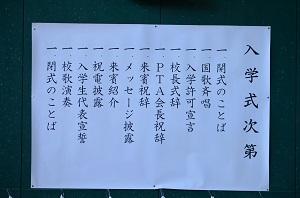 入学式次第
一 開式のことば
一 国歌斉唱
一 入学許可宣言
一 校長式辞
一 PTA会長祝辞
一 来賓祝辞
一 メッセージ披露
一 来賓紹介
一 祝電披露
一 入学生代表宣誓
一 校歌演奏
一 閉式のことば